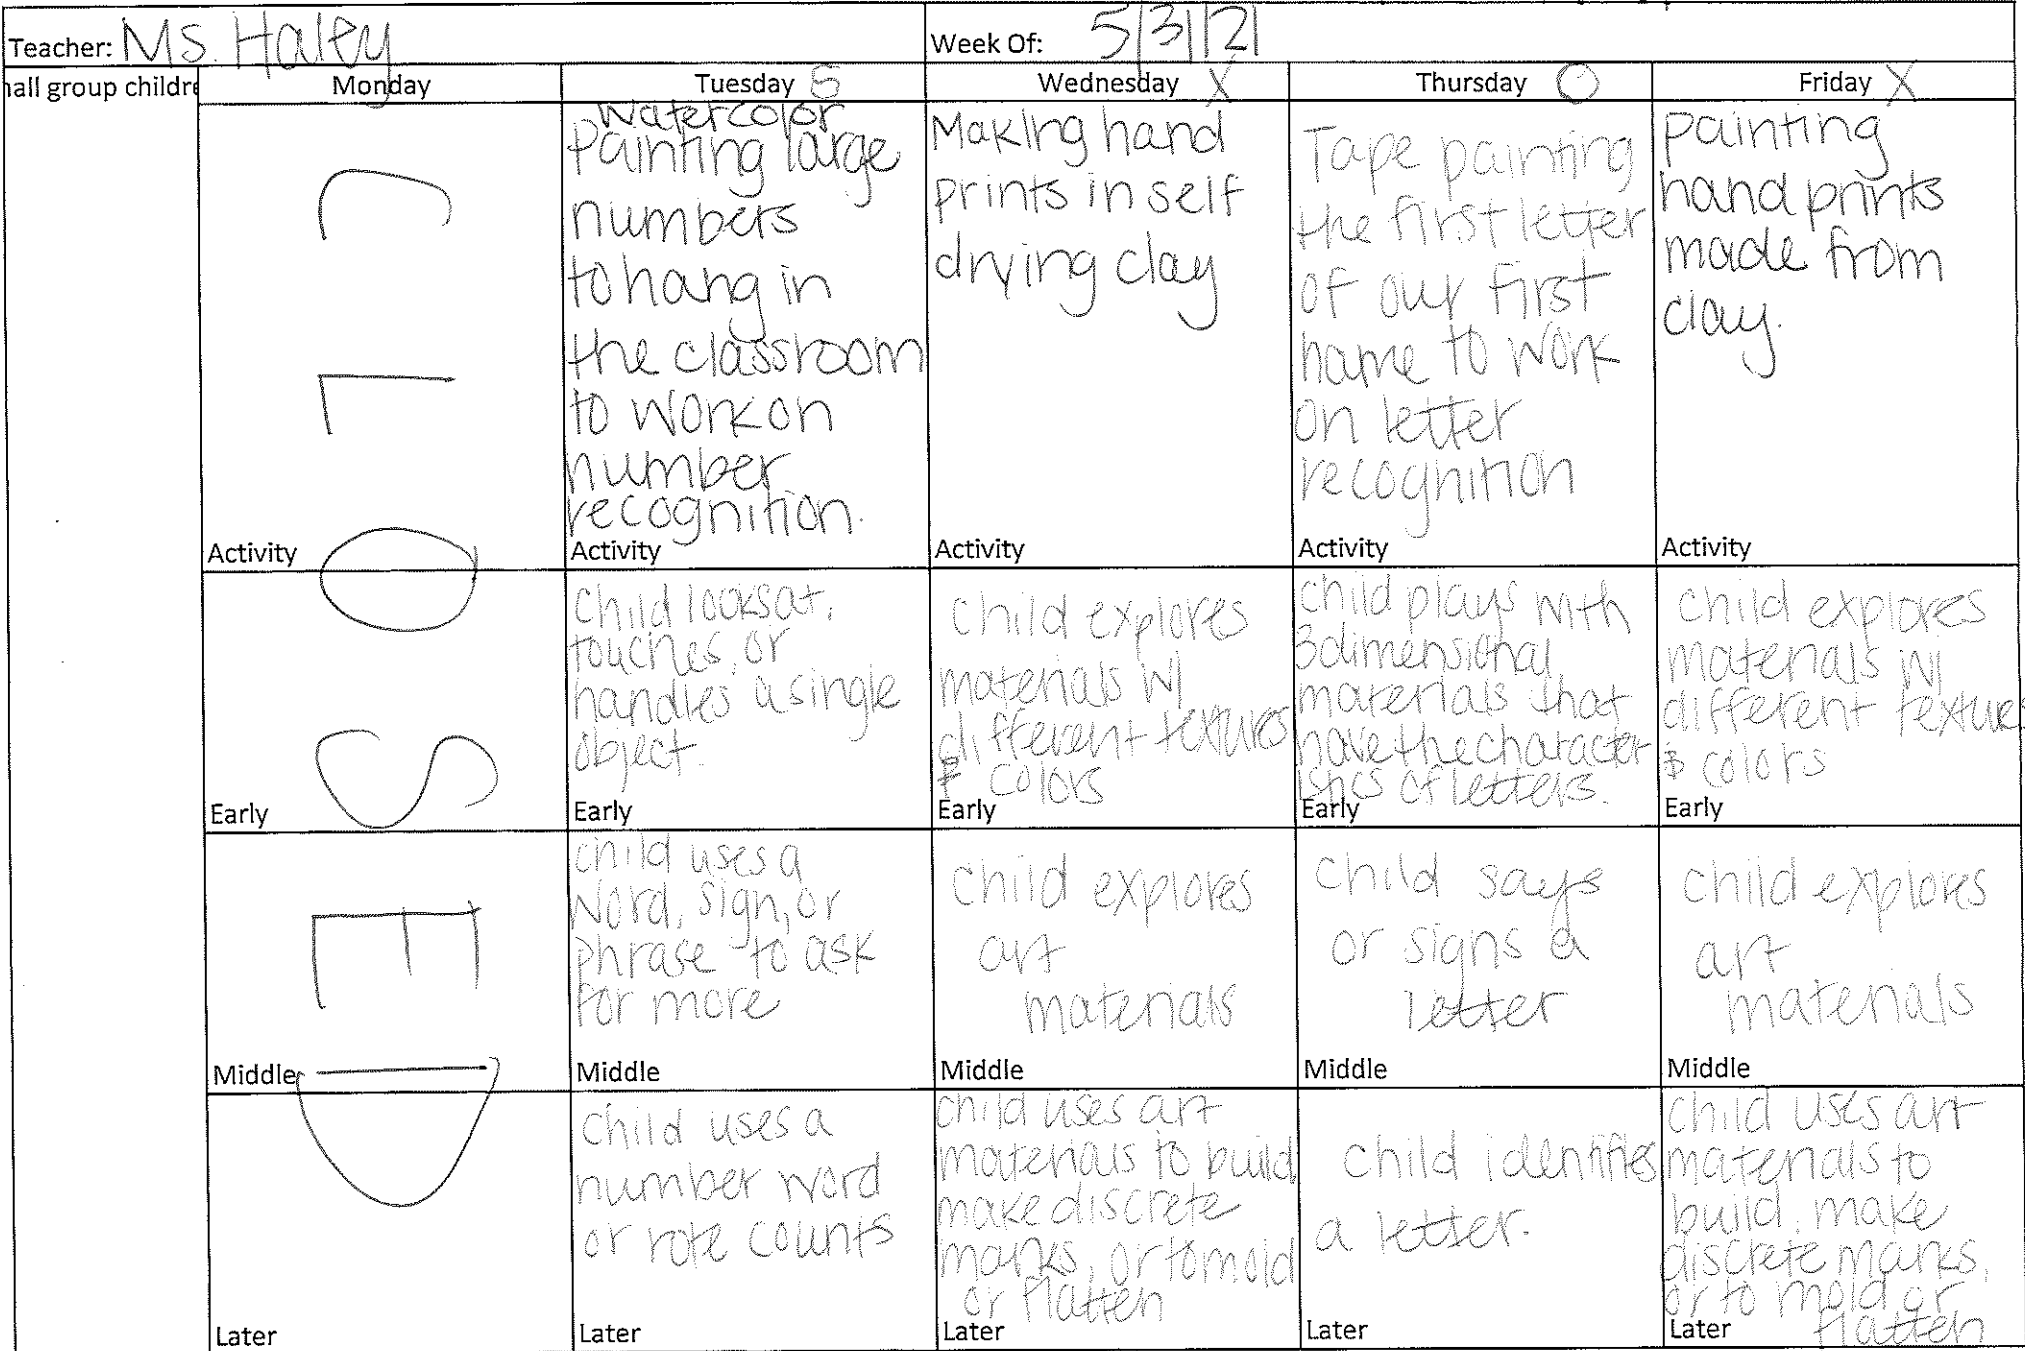 Teacher: Ms. Haley
Week Of: 5/31/21
hall group childre
Monday
Tuesday S
Wednesday X
Thursday O
Friday X
CLOSED
Activity
Watercolor
Painting large
numbers
to hang in
the classroom
to work on
number
recognition.
Activity
Making hand
prints in self
drying clay
Activity
Tape painting
the first letter
of our first
name to work
on letter
recognition
Activity
painting
hand prints
made from
clay.
Activity
Early
child looks at,
touches, or
handles a single
object.
Early
child explores
materials w/
different textures
& colors
Early
child plays with
3 dimensional
materials that
have the character
istics of letters.
Early
child explores
materials w/
different texture
& colors
Early
Middle
child uses a
word, sign, or
phrase to ask
for more
Middle
child explores
art
materials
Middle
child says
or signs a
letter
Middle
child explores
art
materials
Middle
Later
child uses a
number word
or rote counts
Later
child uses art
materials to build
make discrete
marks, or to mold
or flatten
Later
child identifies
a letter.
Later
child uses art
materials to
build, make
discrete marks,
or to mold or
flatten
Later